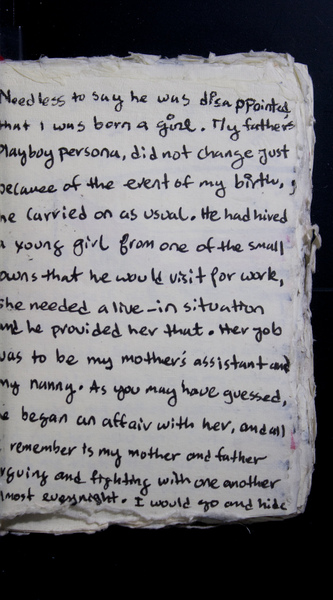 Needless to say he was disappointed,
that I was born a girl. My fathers
playboy persona, did not change just
because of the event of my birth,
he carried on as usual. He had hired
a young girl from one of the small
owns that he would visit for work,
she needed a live-in situation
and he provided her that. Her job
was to be my mother's assistant and
my nanny. As you may have guessed,
he began an affair with her, and all
remember is my mother and father
rguing and fighting with one another
lmost everynight. I would go and hide